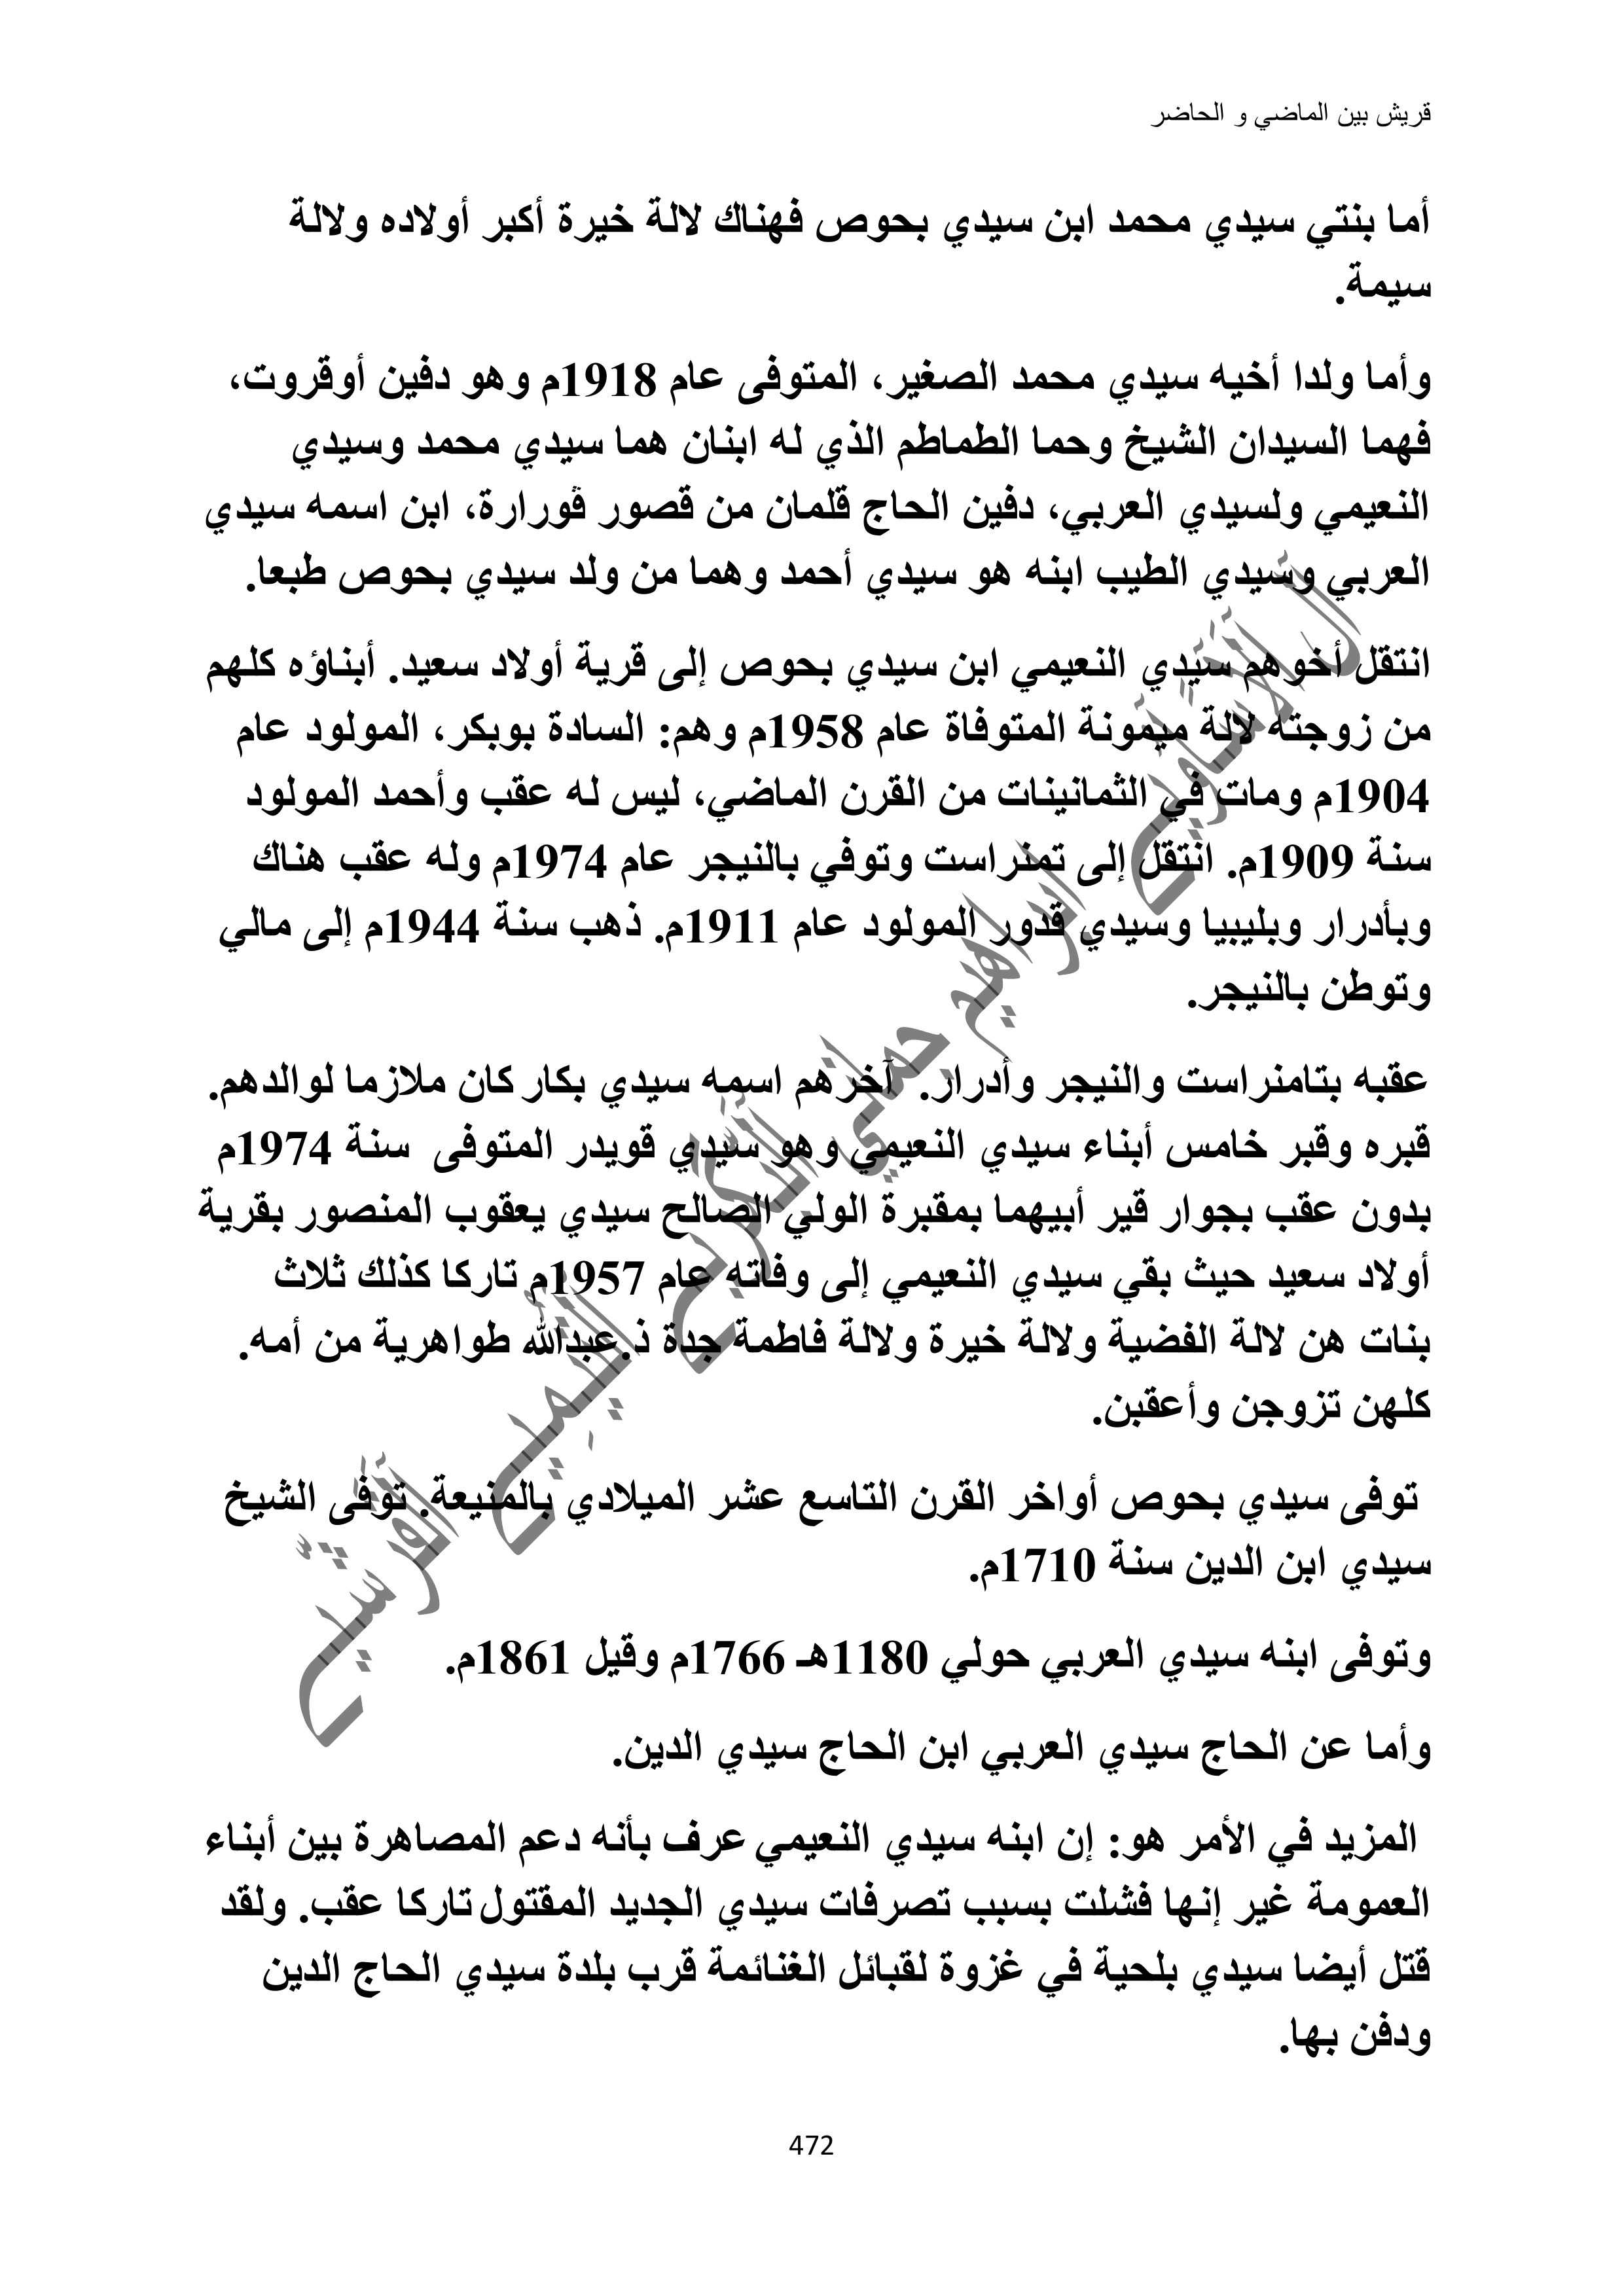 قريش بين الماضي و الحاضر
أما بنتي سيدي محمد ابن سيدي بحوص فهناك لالة خيرة أكبر أولاده ولالة
سيمة.
وأما ولدا أخيه سيدي محمد الصغير، المتوفى عام 1918م وهو دفين أوقروت،
فهما السيدان الشيخ وحما الطماطم الذي له ابنان هما سيدي محمد وسيدي
النعيمي ولسيدي العربي، دفين الحاج قلمان من قصور ڨورارة، ابن اسمه سيدي
العربي وسيدي الطيب ابنه هو سيدي أحمد وهما من ولد سيدي بحوص طبعا.
انتقل أخوهم سيدي النعيمي ابن سيدي بحوص إلى قرية أولاد سعيد. أبناؤه كلهم
من زوجته لالة ميمونة المتوفاة عام 1958م وهم: السادة بوبكر، المولود عام
1904م ومات في الثمانينات من القرن الماضي، ليس له عقب وأحمد المولود
سنة 1909م. انتقل إلى تمنراست وتوفي بالنيجر عام 1974م وله عقب هناك
وبأدرار وبليبيا وسيدي قدور المولود عام 1911م. ذهب سنة 1944م إلى مالي
وتوطن بالنيجر.
عقبه بتامنراست والنيجر وأدرار. آخرهم اسمه سيدي بكار كان ملازما لوالدهم.
قبره وقبر خامس أبناء سيدي النعيمي وهو سيدي قويدر المتوفى سنة 1974م
بدون عقب بجوار قير أبيهما بمقبرة الولي الصالح سيدي يعقوب المنصور بقرية
أولاد سعيد حيث بقي سيدي النعيمي إلى وفاته عام 1957م تاركا كذلك ثلاث
بنات هن لالة الفضية ولالة خيرة ولالة فاطمة جدة ذ.عبدالله طواهرية من أمه.
كلهن تزوجن وأعقبن.
توفى سيدي بحوص أواخر القرن التاسع عشر الميلادي بالمنيعة. توفى الشيخ
سيدي ابن الدين سنة 1710م.
وتوفى ابنه سيدي العربي حولي 1180هـ 1766م وقيل 1861م.
وأما عن الحاج سيدي العربي ابن الحاج سيدي الدين.
المزيد في الأمر هو: إن ابنه سيدي النعيمي عرف بأنه دعم المصاهرة بين أبناء
العمومة غير إنها فشلت بسبب تصرفات سيدي الجديد المقتول تاركا عقب. ولقد
قتل أيضا سيدي بلحية في غزوة لقبائل الغنائمة قرب بلدة سيدي الحاج الدين
ودفن بها.
472